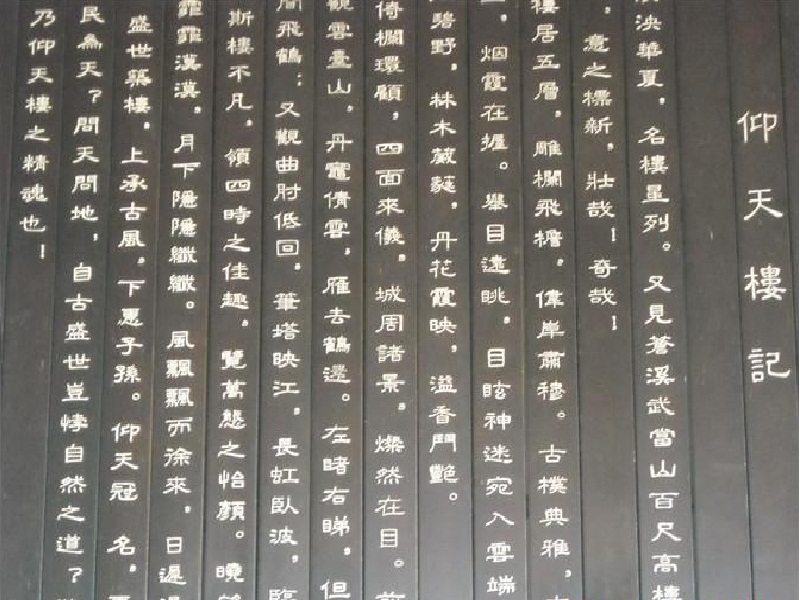 仰天樓記
泱華夏，名樓星列。又見蒼溪武當山百尺高樓
，意之標新，壯哉！奇哉！
樓居五層，雕欄飛檐。偉岸肅穆。古樸典雅，
，烟霞在握。舉目遠眺，目眩神迷宛入雲端
碧野，林木葳蕤，丹花霞映，溢香鬥艷。
倚欄環顧，四面來儀，城周諸景，燦然在目。前
觀雲臺山，丹竈倩雲，雁去鶴邊。左睹右睇，但
間飛鶴；又觀曲肘低回，筆塔映江，長虹臥波，臨
斯樓不凡，領四時之佳趣，覽萬態之怡顏。曉
霏霏漠漠，月下隱隱纖纖。風飄飄而徐來，日遲
盛世築樓，上承古風，下惠子孫。仰天冠名，
民為天？問天問地，自古盛世豈悖自然之道？
乃仰天樓之精魂也！